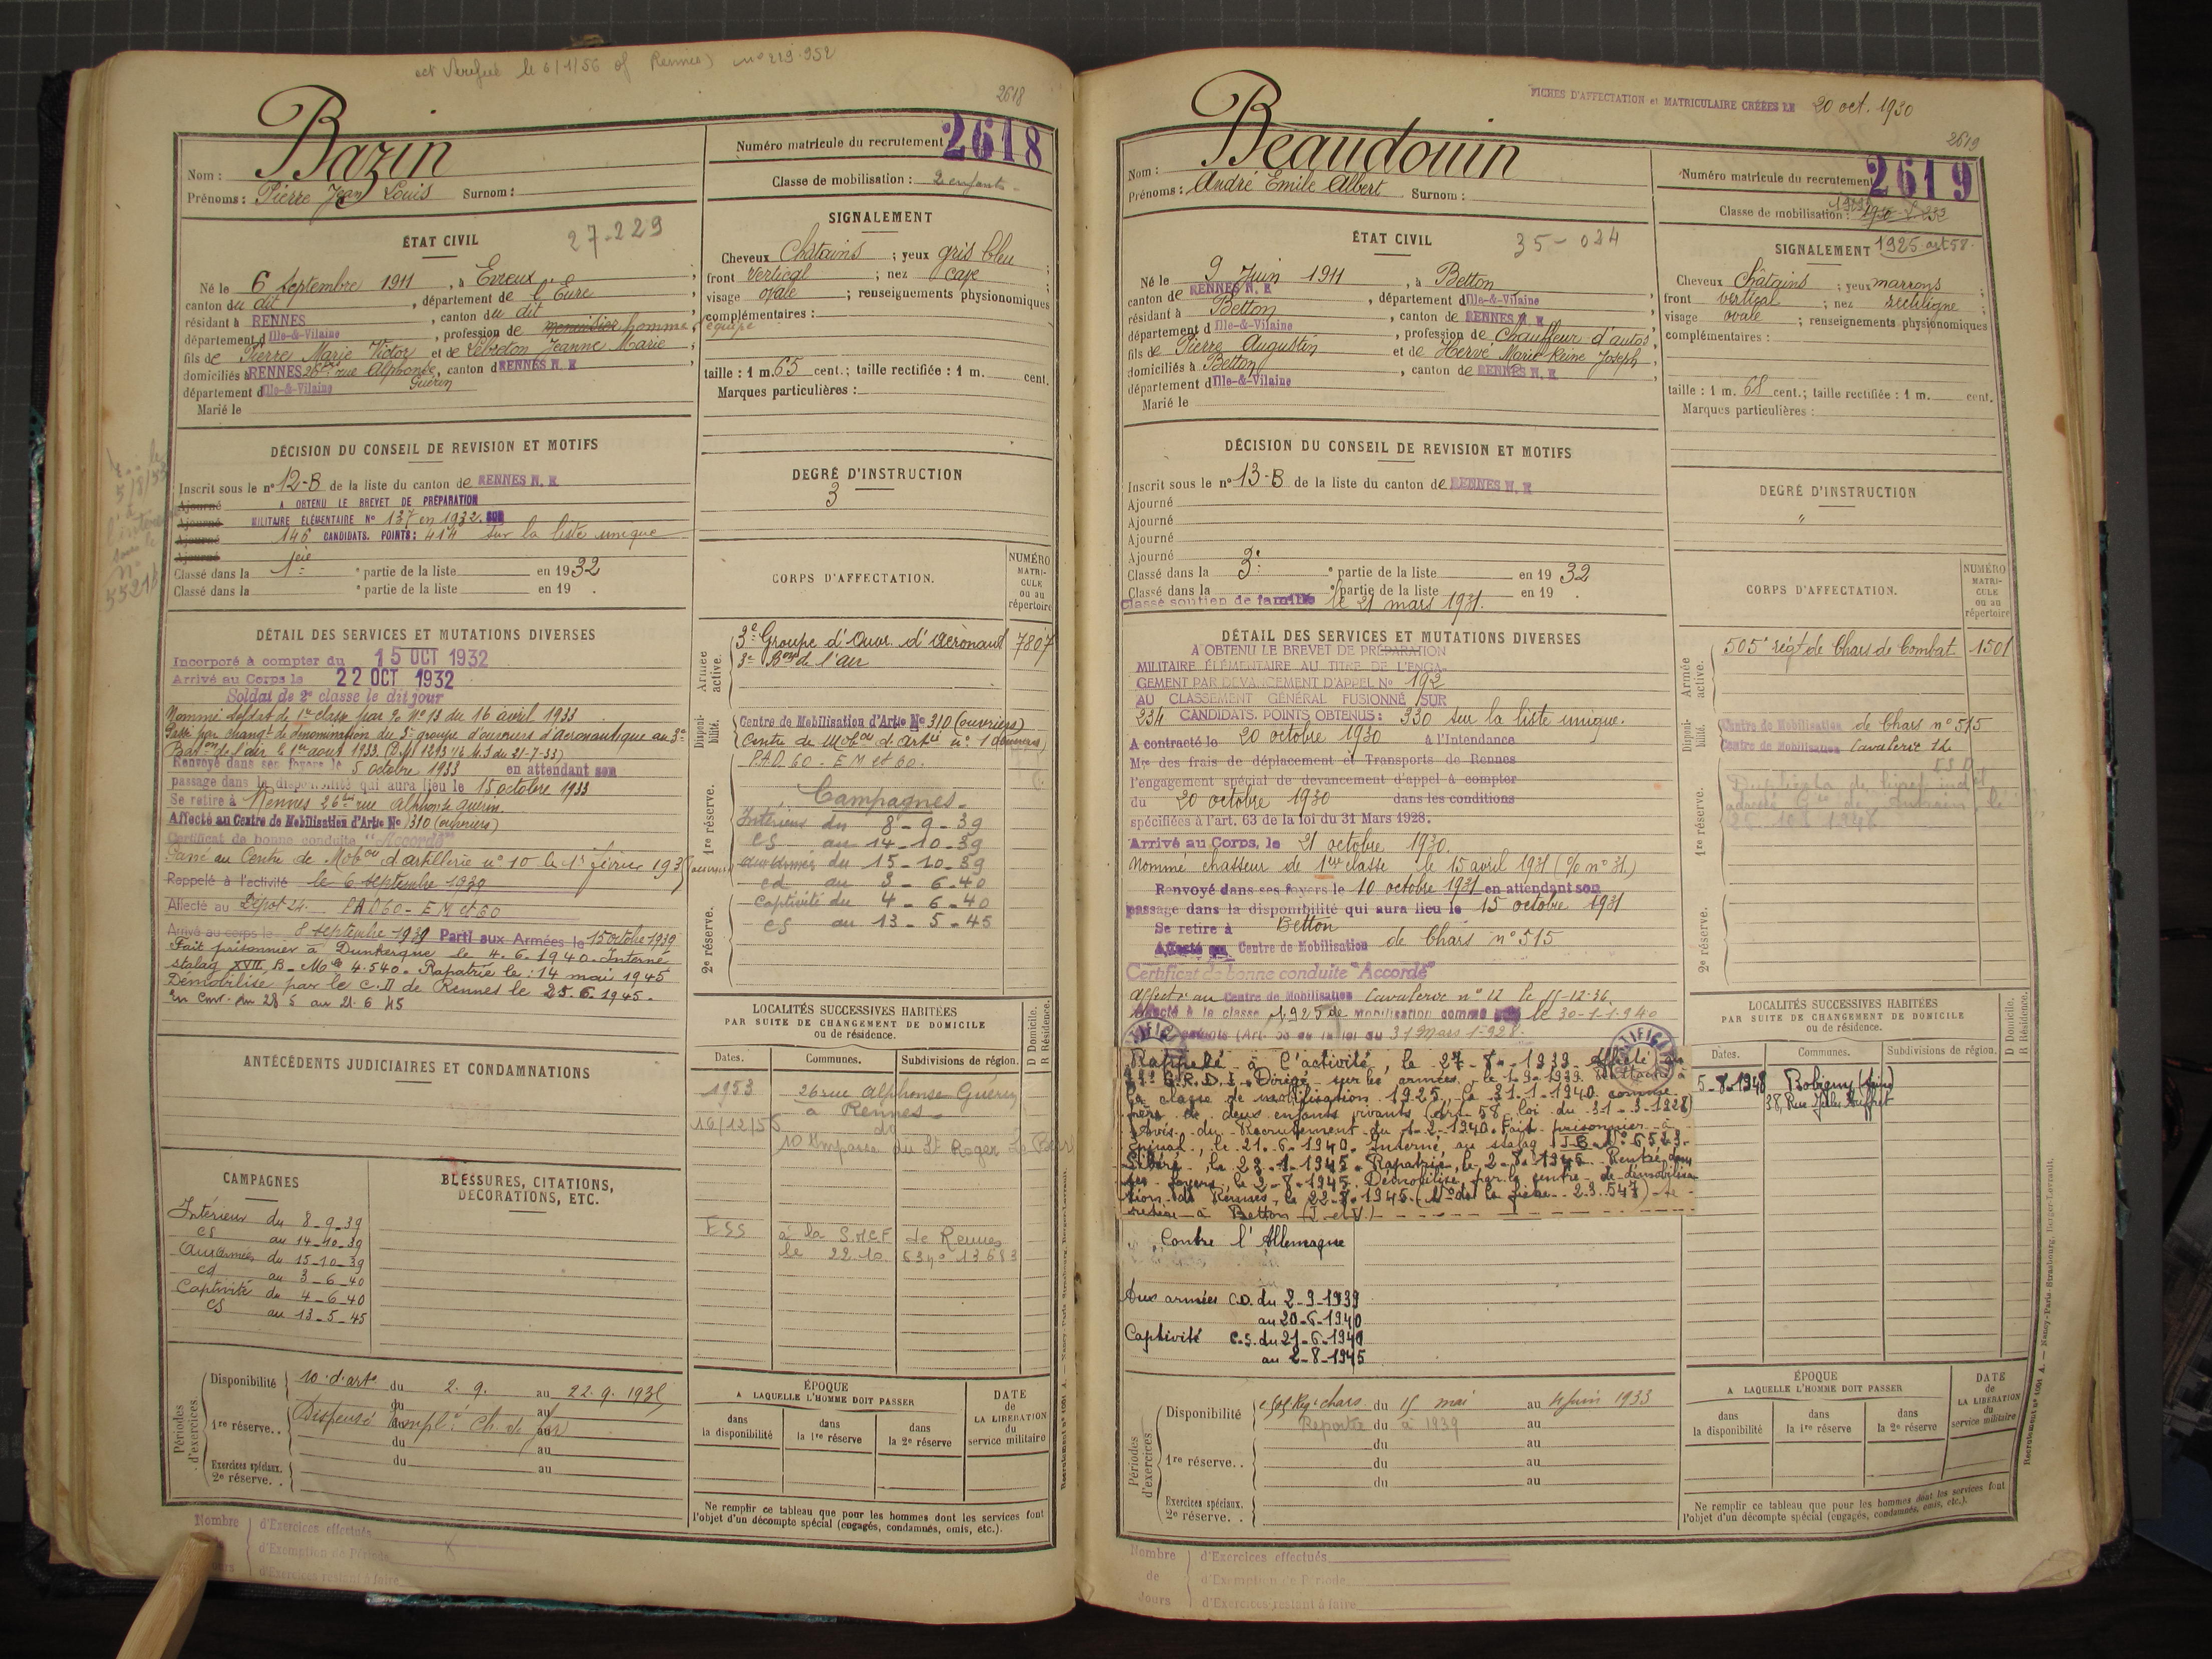 2618
Bazin
Nom :
Prénoms : Pierre Jean Louis Surnom :
Numéro matricule du recrutement 2618
Classe de mobilisation : 2 enfants
ÉTAT CIVIL
27-229
Né le 6 Septembre 1911, à Evreux
canton du dit, département de l'Eure
résidant à RENNES, canton du dit
département d'Ille-&-Vilaine, profession de menuisier homme d'équipe
fils de Pierre Marie Victor et de Lebreton Jeanne Marie
domiciliés à RENNES 26 bis rue Alphonse Guérin, canton de RENNES N. E
département d'Ille-&-Vilaine
Marié le
SIGNALEMENT
Cheveux Châtains ; yeux gris bleu
front vertical ; nez cave
visage ovale ; renseignements physionomiques
complémentaires :
taille : 1 m. 65 cent.; taille rectifiée : 1 m. cent.
Marques particulières :
DÉCISION DU CONSEIL DE REVISION ET MOTIFS
Inscrit sous le n° 12-B de la liste du canton de RENNES N. E
Ajourné A OBTENU LE BREVET DE PRÉPARATION
Ajourné MILITAIRE ÉLÉMENTAIRE N° 137 en 1932. SUR
Ajourné 146 CANDIDATS. POINTS: 414 sur la liste unique
Ajourné
Classé dans la 1ère partie de la liste en 1932
Classé dans la partie de la liste en 19
DEGRÉ D'INSTRUCTION
3
DÉTAIL DES SERVICES ET MUTATIONS DIVERSES
Incorporé à compter du 15 OCT 1932
Arrivé au Corps le 22 OCT 1932
Soldat de 2e classe le dit jour
Nommé soldat de 1re classe par o. N° 13 du 16 avril 1933
Passé par changt de dénomination du 3e groupe d'ouvriers d'aéronautique au 3e
Baton de l'air le 1er aout 1933
Renvoyé dans ses foyers le 5 octobre 1933 en attendant son
passage dans la disponibilité qui aura lieu le 15 octobre 1933
Se retire à Rennes 26 bis rue Alphonse Guérin.
Affecté au Centre de Mobilisation d'Artie No 310 (ouvriers)
Certificat de bonne conduite "Accordé"
Passé au Centre de Mobon d'artillerie n° 10 le 1er février
Rappelé à l'activité le 6 septembre 1939
Affecté au Dépot 24. PAD 60 - EM et 60
Arrivé au corps le 8 septembre 1939 Parti aux Armées le 15 octobre 1939
Fait prisonnier à Dunkerque le 4.6.1940. Interné
stalag XVII B - Mle 4.540. Rapatrié le : 14 mai 1945
Démobilisé par le C.D de Rennes le 25.6.1945.
CORPS D'AFFECTATION.
NUMÉRO MATRICULE ou au répertoire
Armée active.
3e Groupe d'Ouvr. d'Aéronaut 7807
3e Bon de l'air
Disponibilité.
Centre de Mobilisation d'Artie No 310 (ouvriers)
Centre de Mobon d'Artie n° 10 (ouvriers)
PAD 60 - EM et 60.
1re réserve.
Campagnes
Intérieur du 8-9-39
CS au 14-10-39
aux armées du 15-10-39
cd au 3-6-40
2e réserve.
Captivité du 4-6-40
CS au 13-5-45
ANTÉCÉDENTS JUDICIAIRES ET CONDAMNATIONS
LOCALITÉS SUCCESSIVES HABITÉES
PAR SUITE DE CHANGEMENT DE DOMICILE
ou de résidence.
D Domicile.
R Résidence.
Dates. Communes. Subdivisions de région.
1953 26 rue Alphonse Guérin
à Rennes
16/12/55 do
10 Impasse du
ESS à la SNCF de Rennes
le 22.10.
CAMPAGNES
BLESSURES, CITATIONS,
DÉCORATIONS, ETC.
Intérieur du 8-9-39
CS au 14-10-39
Aux armées du 15-10-39
cd au 3-6-40
Captivité du 4-6-40
CS au 13-5-45
Périodes d'exercices.
Disponibilité 10e d'arte du 2.9. au 22.9.1935
1re réserve. . Dispensé empl. Ch. de fer
du au
du au
Exercices spéciaux.
2e réserve. .
ÉPOQUE
A LAQUELLE L'HOMME DOIT PASSER
dans la disponibilité
dans la 1re réserve
dans la 2e réserve
DATE de LA LIBÉRATION du service militaire
Ne remplir ce tableau que pour les hommes dont les services font
l'objet d'un décompte spécial (engagés, condamnés, omis, etc.).
Nombre d'Exercices effectués
d'Exemption de Période
Jours d'Exercices restant à faire
FICHES D'AFFECTATION et MATRICULAIRE CRÉÉES LE 20 oct. 1930
2619
Beaudouin
Nom :
Prénoms : André Emile Albert Surnom :
Numéro matricule du recrutement 2619
Classe de mobilisation :
1925 art 58
ÉTAT CIVIL
35-024
Né le 9 Juin 1911, à Betton
canton de RENNES N. E, département d'Ille-&-Vilaine
résidant à Betton, canton de RENNES N. E
département d'Ille-&-Vilaine, profession de Chauffeur d'autos
fils de Pierre Augustin et de Hervé Marie Reine Joseph
domiciliés à Betton, canton de RENNES N. E
département d'Ille-&-Vilaine
Marié le
SIGNALEMENT
Cheveux Châtains ; yeux marrons
front vertical ; nez rectiligne
visage ovale ; renseignements physionomiques
complémentaires :
taille : 1 m. 68 cent.; taille rectifiée : 1 m. cent.
Marques particulières :
DÉCISION DU CONSEIL DE REVISION ET MOTIFS
Inscrit sous le n° 13-B de la liste du canton de RENNES N. E
Ajourné
Ajourné
Ajourné
Ajourné
Classé dans la 3e partie de la liste en 1932
Classé dans la partie de la liste en 19
Classé soutien de famille le 21 mars 1931.
DEGRÉ D'INSTRUCTION
"
DÉTAIL DES SERVICES ET MUTATIONS DIVERSES
A OBTENU LE BREVET DE PRÉPARATION
MILITAIRE ÉLÉMENTAIRE AU TITRE DE L'ENGA-
GEMENT PAR DEVANCEMENT D'APPEL No 192
AU CLASSEMENT GÉNÉRAL FUSIONNÉ SUR
234 CANDIDATS. POINTS OBTENUS : 330 sur la liste unique.
A contracté le 20 octobre 1930 à l'Intendance
Mre des frais de déplacement et Transports de Rennes
l'engagement spécial de devancement d'appel à compter
du 20 octobre 1930 dans les conditions
spécifiées à l'art. 63 de la loi du 31 Mars 1928.
Arrivé au Corps, le 21 octobre 1930.
Nommé chasseur de 1re classe le 15 avril 1931 (o/o n° 31.)
Renvoyé dans ses foyers le 10 octobre 1931 en attendant son
passage dans la disponibilité qui aura lieu le 15 octobre 1931
Se retire à Betton
Affecté au Centre de Mobilisation de Chars n° 515
Certificat de bonne conduite "Accordé"
Affecté au Centre de Mobilisation Cavalerie n° 12 le 11-12-36
Affecté à la classe 1925 de mobilisation comme le 30-1-1940
enfants (Art. 58 de la loi du 31 Mars 1928.
Rappelé à l'activité, le 27-8-1939. Affecté au
G.R.D.I. Dirigé sur les armées, le 1-9-1939. Rattaché à
la classe de mobilisation 1925, le 31-1-1940 comme
père de deux enfants vivants (Art. 58 loi du 31-3-1928)
Avis du Recrutement du 1-2-1940. Fait prisonnier à
Epinal, le 21-6-1940. Interné au stalag I B N° 6523.
Libéré, le 23-1-1945. Rapatrié, le 2-8-1945. Rentré dans
ses foyers, le 2-8-1945. Démobilisé par le centre de démobilisa-
tion de Rennes, le 22-8-1945. (N° de la fiche 23.547) se
retire à Betton (I. et V.)
CORPS D'AFFECTATION.
NUMÉRO MATRICULE ou au répertoire
Armée active.
505e régt de Chars de Combat 1501
Disponibilité.
Centre de Mobilisation de Chars n° 515
Centre de Mobilisation Cavalerie 12
1re réserve.
Duplicata de livret ind
2e réserve.
LOCALITÉS SUCCESSIVES HABITÉES
PAR SUITE DE CHANGEMENT DE DOMICILE
ou de résidence.
D Domicile.
R Résidence.
Dates. Communes. Subdivisions de région.
5-8-1948 Bobigny (Seine)
38, Rue Jules Guffret
Contre l'Allemagne
Aux armées C.D. du 2-9-1939
au 20-6-1940
Captivité C.S. du 21-6-1940
au 2-8-1945
Périodes d'exercices.
Disponibilité 505 Regt chars du 15 mai au 4 juin 1933
Reporté du à 1939 au
du au
1re réserve. . du au
du au
Exercices spéciaux.
2e réserve. .
ÉPOQUE
A LAQUELLE L'HOMME DOIT PASSER
dans la disponibilité
dans la 1re réserve
dans la 2e réserve
DATE de LA LIBÉRATION du service militaire
Ne remplir ce tableau que pour les hommes dont les services font
l'objet d'un décompte spécial (engagés, condamnés, omis, etc.).
Nombre d'Exercices effectués
de d'Exemption de Période
Jours d'Exercices restant à faire